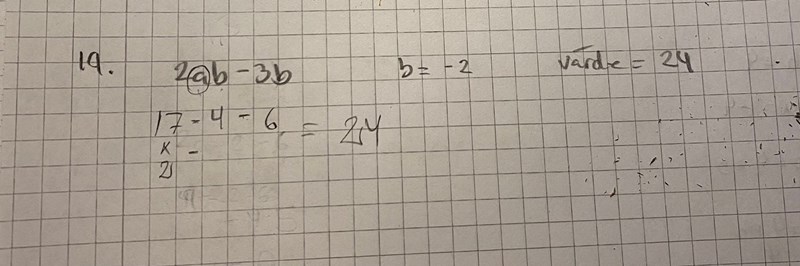 19. 2ab - 3b b = -2 värde = 24
17 - 4 - 6 = 24
x -
2